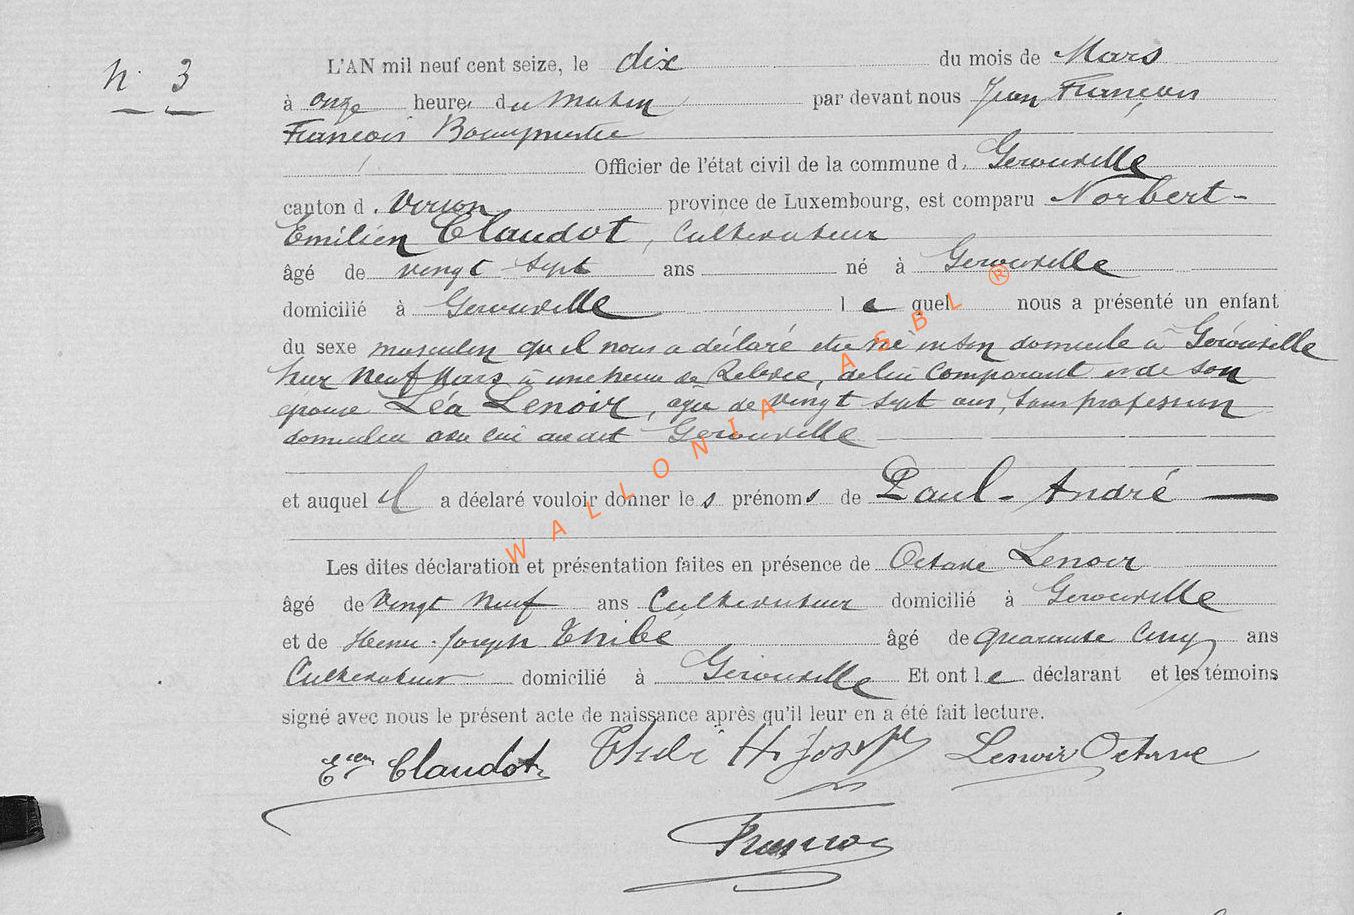 N° 3
L'AN mil neuf cent seize, le dix du mois de Mars
à onze heure du matin par devant nous Jean François
François Bourgmestre
Officier de l'état civil de la commune d. Gérouville
canton d. Virton province de Luxembourg, est comparu Norbert-
Emilien Claudot, Cultivateur
âgé de vingt sept ans né à Gérouville
domicilié à Gérouville le quel nous a présenté un enfant
du sexe masculin qu'il nous a déclaré etre né en son domicile à Gérouville
hier neuf Mars à une heure de relevée, de lui comparant et de son
épouse Léa Lenoir, agée de vingt sept ans, sans profession
domiciliée avec lui audit Gérouville
et auquel il a déclaré vouloir donner les prénoms de Paul-André
Les dites déclaration et présentation faites en présence de Octave Lenoir
âgé de vingt neuf ans Cultivateur domicilié à Gérouville
et de Henri-Joseph Thibé âgé de quarante cinq ans
Cultivateur domicilié à Gérouville Et ont le déclarant et les témoins
signé avec nous le présent acte de naissance après qu'il leur en a été fait lecture.
Eien Claudot Thibé H Joseph Lenoir Octave
François
WALLONIA ASBL ®